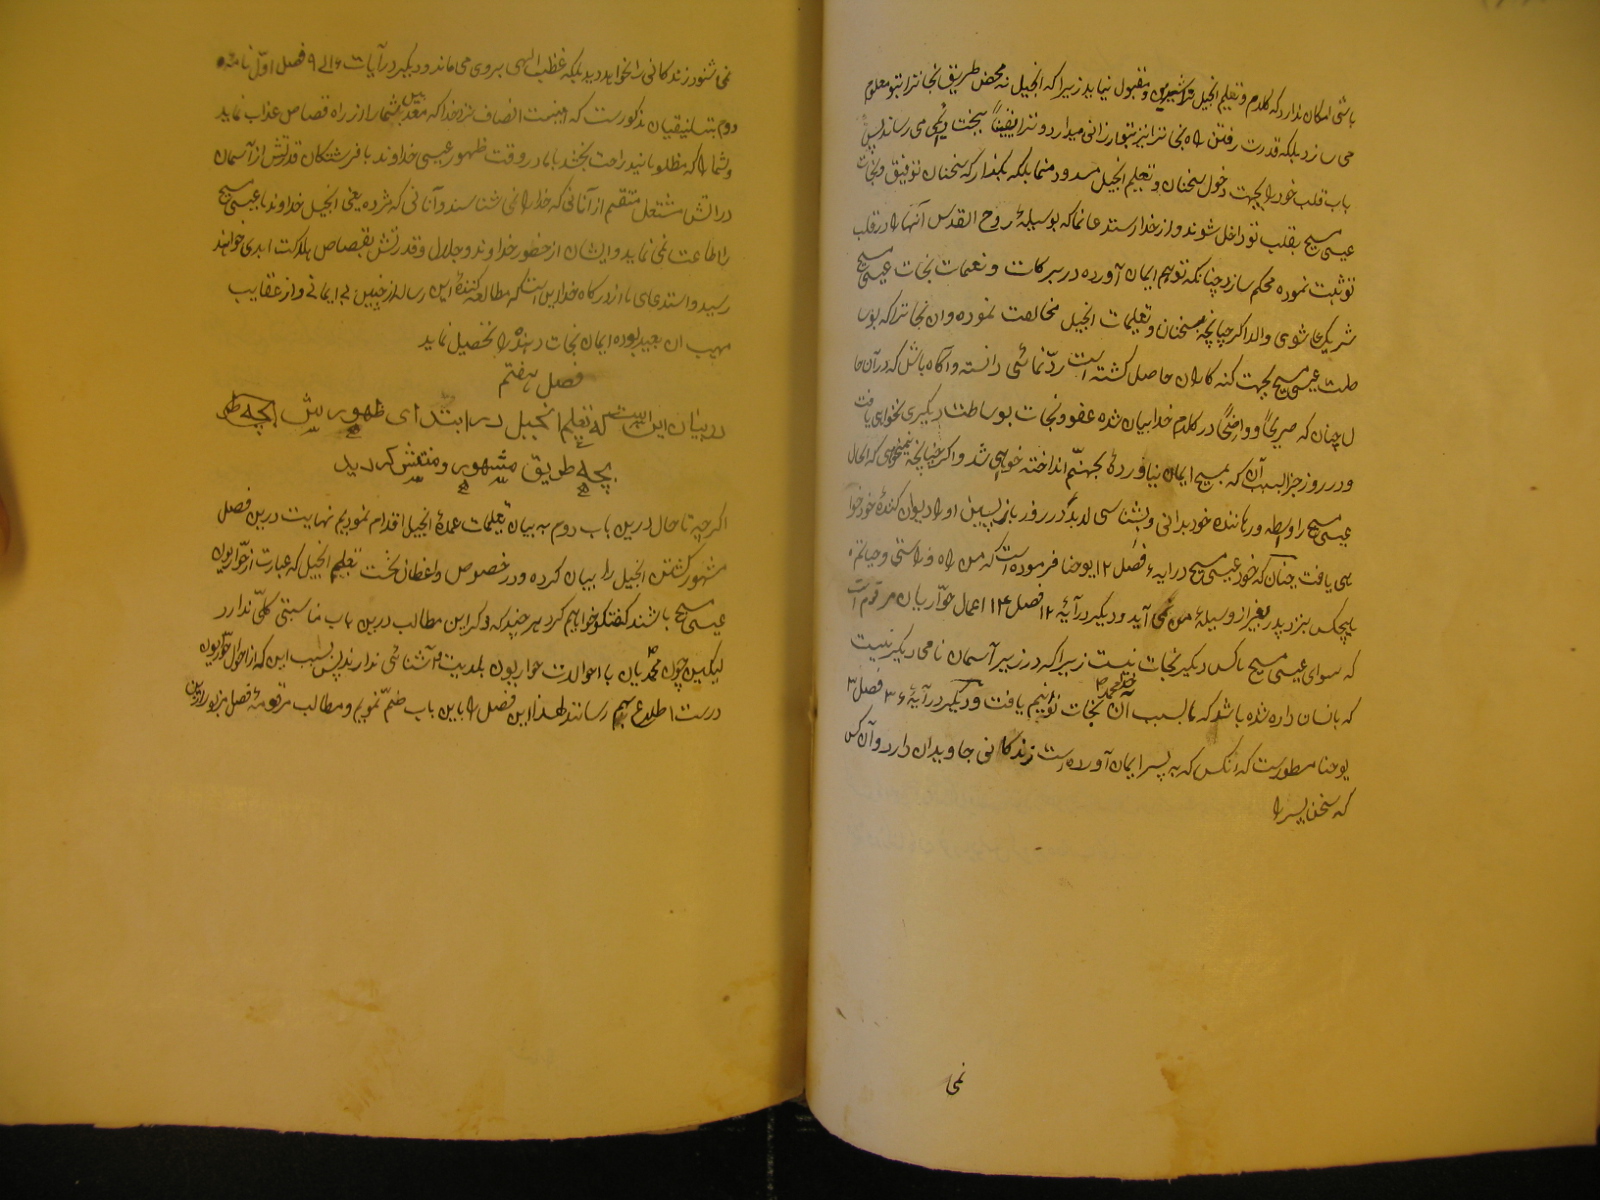 باشی امکان ندارد که کلام و تعلیم انجیل ترا شیرین و مقبول نیاید زیرا که انجیل نه محض طریق نجات را بتو معلوم
می سازد بلکه قدرت رفتن راه نجاترا نیز بتو ارزانی میدارد و ترا یقیناً بخت می رساند پس
باب قلب خود را بجهت دخول سخنان و تعلیم انجیل مسدود منما بلکه بگذار که سخنان توفیق و نجات
عیسی مسیح بقلب تو داخل شوند و از خدا استدعا نما که بوسیلهٔ روح القدس آنها را در قلب
تو ثبت نموده محکم سازد چنانکه تو هم ایمان آورده در برکات و نعمات نجات عیسی مسیح
شریک شوی و الا اگر چنانچه بسخنان و تعلیمات انجیل مخالفت نموده و آن نجاترا که بوسا
طت عیسی مسیح بجهت گنه کاران حاصل گشته است ردّ نمائی دانسته و آگاه باش که در آن حا
ل چنان که صریحاً و واضحاً در کلام خدا بیان شده عفو و نجات بوساطت دیگری نخواهی یافت
و در روز جزا بسبب آن که بمسیح ایمان نیاوردهٔ بجهنّم انداخته خواهی شد و اگر چنانچه نمیخواهی که الحال
عیسی مسیح را واسطه و رهاننده خود بدانی و بشناسی لابد در روز بازپسین او را دیوان کنندهٔ خود خوا
هی یافت چنان که خود عیسی مسیح در آیه ۶ فصل ۱۲ یوحنا فرموده است که من راه و راستی و حیاتم و
هیچکس بنزد پدر بغیر از وسیلهٔ من نمی آید و دیگر در آیهٔ ۱۲ فصل ۱۴ اعمال حوّاریان مرقوم است
که سوای عیسی مسیح با کس دیگر نجات نیست زیرا که در زیر آسمان نامی دیگر نیست
که بانسان داده شده باشد که ما بسبب آن نجات توانیم یافت و دیگر در آیهٔ ۳۶ فصل ۳
یوحنا مسطورست که آنکس که به پسر ایمان آورده است زندگانی جاویدان دارد و آن کس
که سخن پسر را
نمی
نمی شنود زندگانی را نخواهد دید بلکه غظب الهی بر وی می ماند و دیگر در آیات ۶ الی ۹ فصل اوّل نامه
دوم بتسلنیقیان مذکورست که اینست انصاف نزد خدا که معذبین شما را از راه قصاص عذاب نماید
و شما را که مظلومانید راحت بخشد با ما در وقت ظهور عیسی خداوند با فرشتگان قدرتش از آسمان
در آتش مشتعل منتقم از آنانی که خدا را نمی شناسند و آنانی که مژده یعنی انجیل خداوند ما عیسی مسیح
را اطاعت نمی نماید و ایشان از حضور خداوند و جلال و قدرتش بقصاص هلاکت ابدی خواهند
رسید و استدعای ما از درگاه خدا این است که مطالعه کنندهٔ این رساله از چنین بی ایمانی و از عقایب
مهیب آن بعید بوده ایمان نجات دهنده را تحصیل نماید
فصل هفتم
در بیان این است که تعلیم انجیل در ابتدای ظهورش بچه طو
بچه طریق مشهور و منتشر گردید
اگر چه تا حال درین باب دوم به بیان تعلیمات عمدهٔ انجیل اقدام نمودیم نهایت درین فصل
مشهور گشتن انجیل را بیان کرده و در خصوص واعظان نخست تعلیم انجیل که عبارت از حوّاریون
عیسی مسیح باشند گفتگو خواهیم کرد هر چند که ذکر این مطالب درین باب مناسبتی کلّی ندارد
لیکن چون محمدیان با احوالات حواریون بلدیت و آشنائی ندارند پس بسبب این که از احوال حوّاریون
درست اطلاع بهم رسانند لهذا این فصل را باین باب ضمّ نمودیم و مطالب مرقومهٔ فصل مزبور